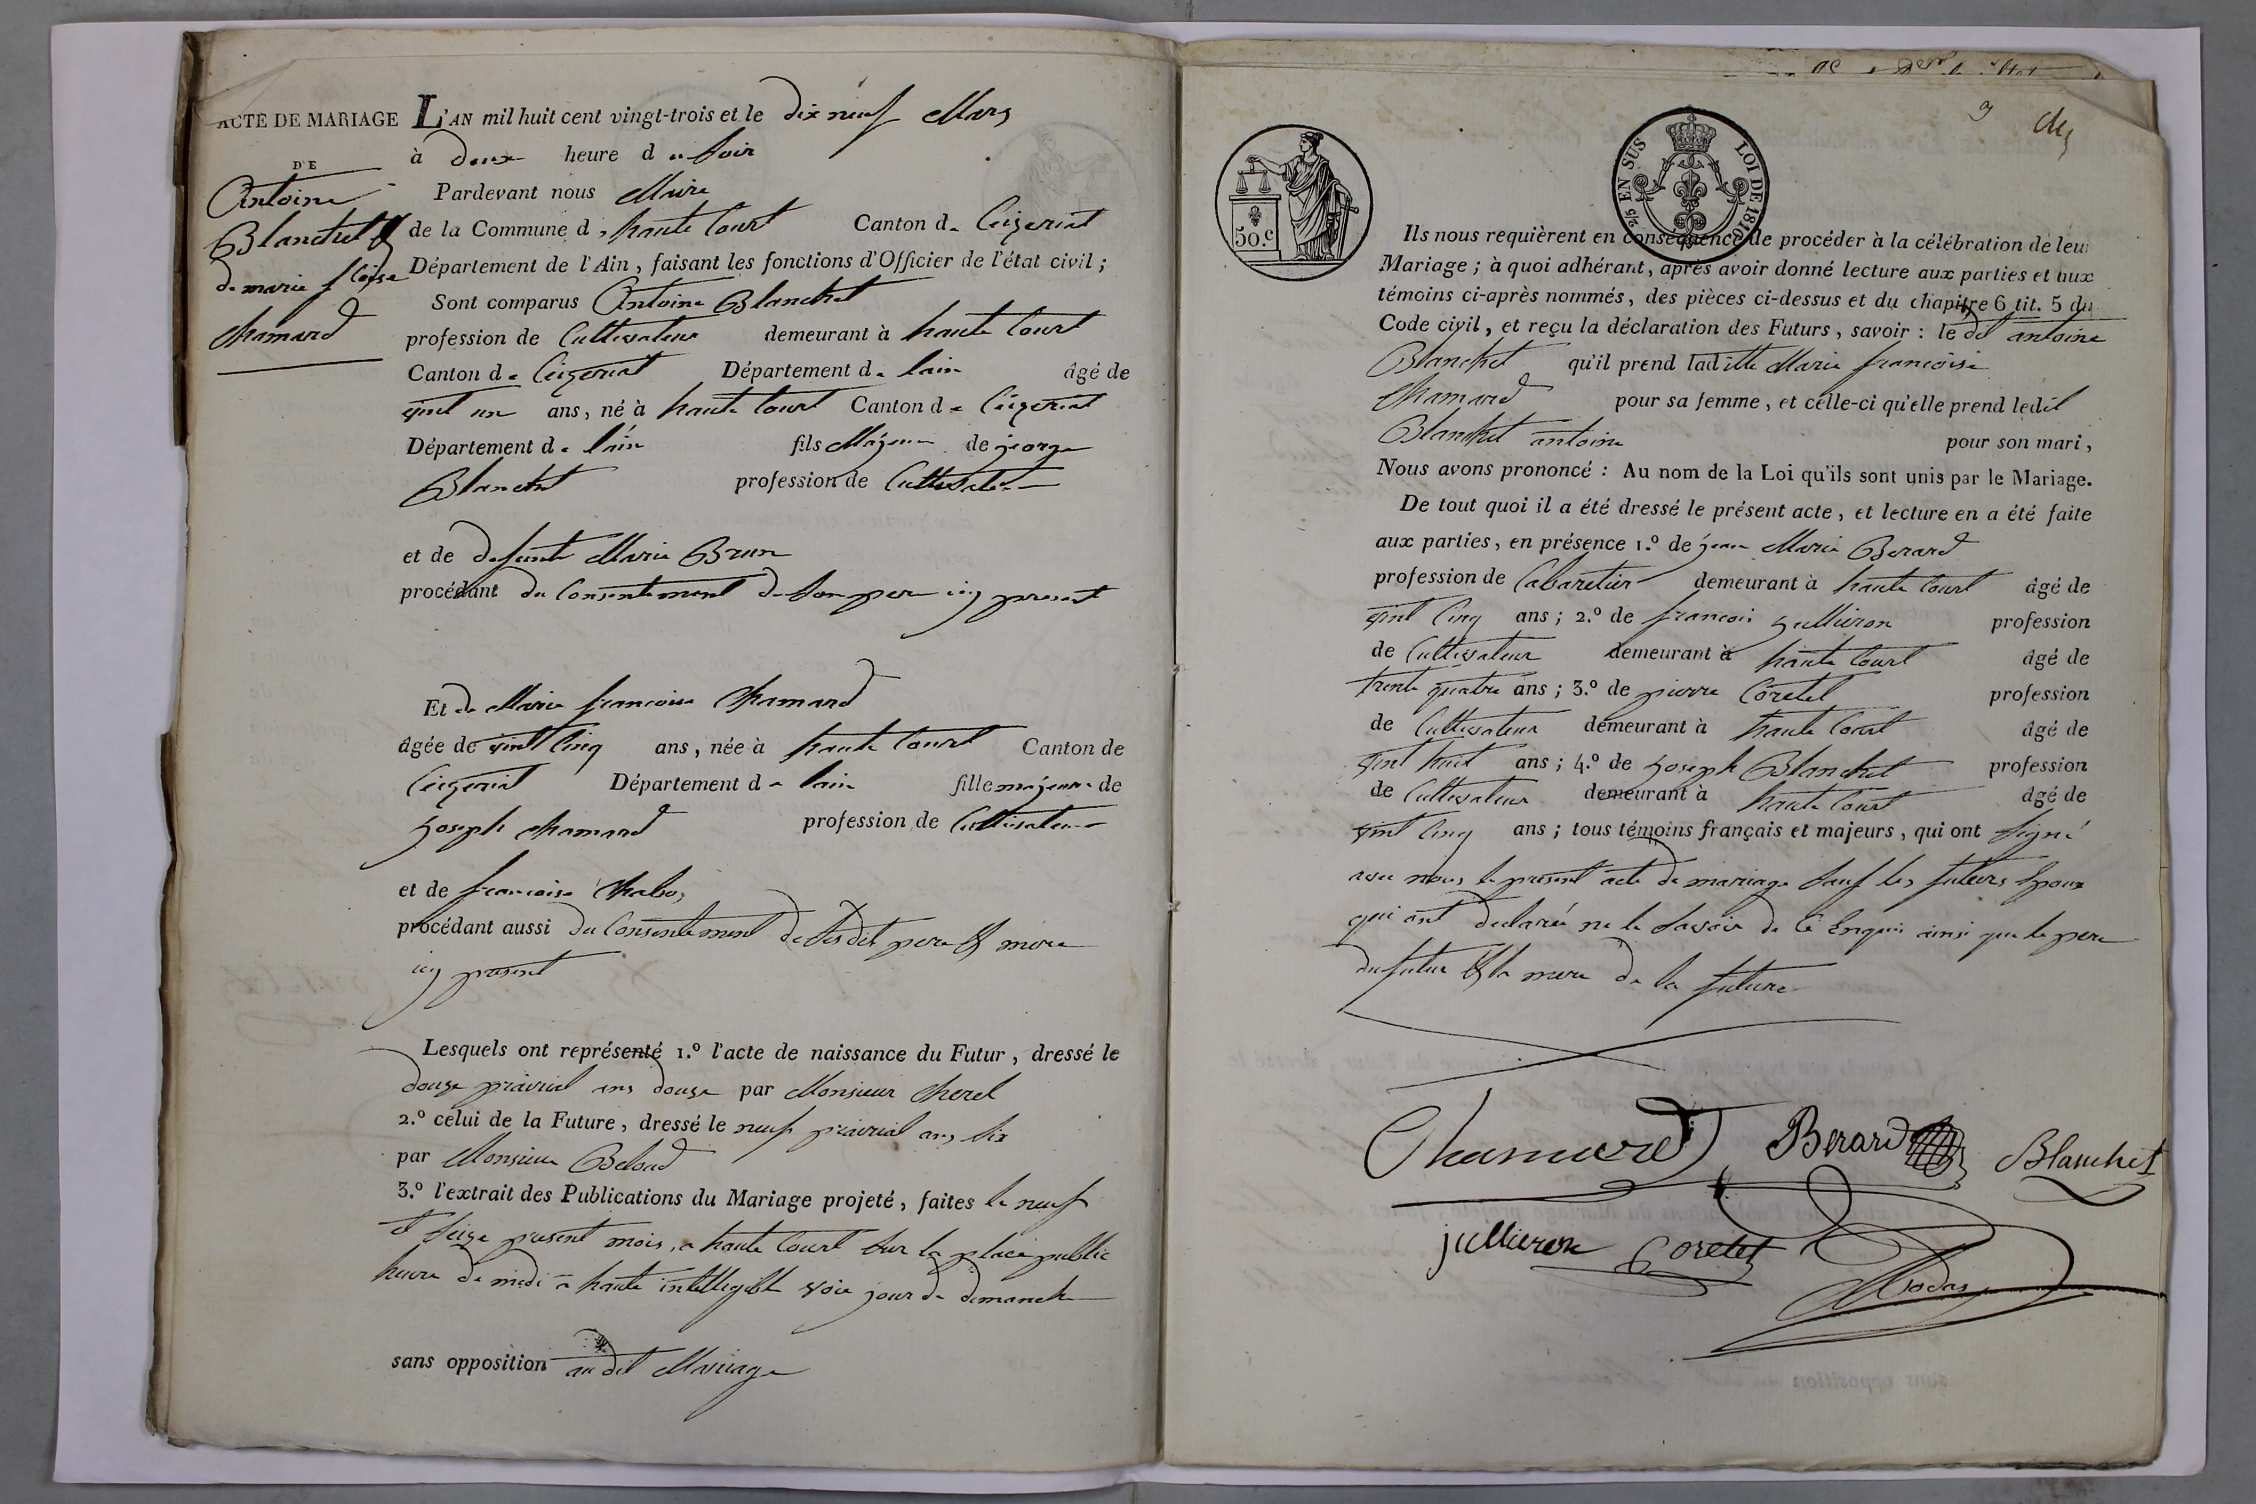 ACTE DE MARIAGE
DE
Antoine
Blanchet &
de marie f.coise
Chamard
L'AN mil huit cent vingt-trois et le dix neuf Mars
à deux heure du Soir
Pardevant nous Maire
de la Commune d haute Court Canton de Ceizeriat
Département de l'Ain, faisant les fonctions d'Officier de l'état civil;
Sont comparus Antoine Blanchet
profession de Cultivateur demeurant à haute Court
Canton de Ceizeriat Département de lain âgé de
vint un ans, né à haute Court Canton de Ceizeriat
Département de lain fils Majeur de george
Blanchet profession de Cultivateur
et de defunte Marie Brun
procédant du Consentement de Son pere icy present
Et de Marie francoise Chamard
âgée de vint Cinq ans, née à haute Court Canton de
Ceizeriat Département de lain fille majeure de
Joseph Chamard profession de Cultivateur
et de francoise Chabos
procédant aussi du Consentement de Ses dit pere & mere
icy present
Lesquels ont représenté 1.º l'acte de naissance du Futur, dressé le
douze prairial ans douze par Monsieur Cherel
2.º celui de la Future, dressé le neuf prairial ans Six
par Monsieur Beloud
3.º l'extrait des Publications du Mariage projeté, faites le neuf
et Seize present mois, a haute Court Sur la place public
heure de midi a haute intelligible voie jour de dimanche
sans opposition au dit Mariage
9
50.C
2/5 EN SUS LOI DE 1816
Ils nous requièrent en conséquence de procéder à la célébration de leur
Mariage; à quoi adhérant, après avoir donné lecture aux parties et aux
témoins ci-après nommés, des pièces ci-dessus et du chapitre 6 tit. 5 du
Code civil, et reçu la déclaration des Futurs, savoir: le dit antoine
Blanchet qu'il prend ladite Marie francoise
Chamard pour sa femme, et celle-ci qu'elle prend ledit
Blanchet antoine pour son mari,
Nous avons prononcé: Au nom de la Loi qu'ils sont unis par le Mariage.
De tout quoi il a été dressé le présent acte, et lecture en a été faite
aux parties, en présence 1.º de jean Marie Berard
profession de Cabaretier demeurant à haute Court âgé de
vint Cinq ans; 2.º de francois Jullieron profession
de Cultivateur demeurant à haute Court âgé de
trente quatre ans; 3.º de pierre Coretel profession
de Cultivateur demeurant à haute Court âgé de
vint huit ans; 4.º de Joseph Blanchet profession
de Cultivateur demeurant à haute Court âgé de
vint Cinq ans; tous témoins français et majeurs, qui ont Signé
avec nous le present acte de mariage Sauf les futurs Epoux
qui ont declaré ne le Savoir de Ce Enquis ainsi que le pere
du futur & la mere de la future
Chamard Berard Blanchet
jullieron Coretet